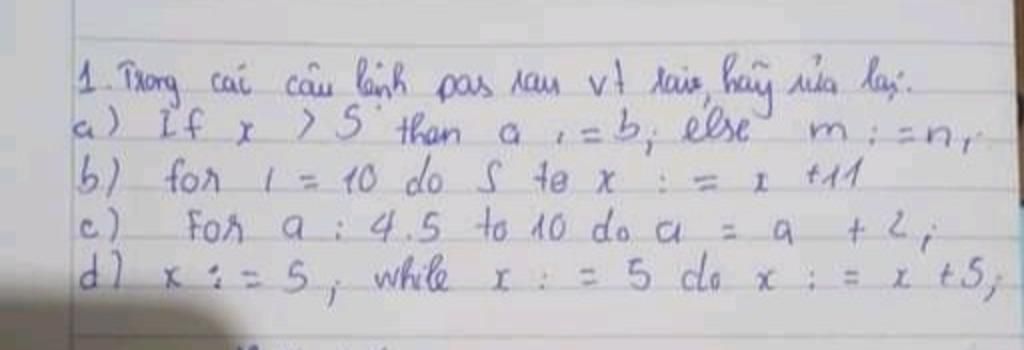 1. Trong các câu lệnh pas sau vt sai, hãy sửa lại:
a) If x > 5 than a := b; else m := n;
b) for i = 10 do 5 to x := x +11
c) For a : 4.5 to 10 do a = a + 2;
d) x := 5; while x := 5 do x := x +5;